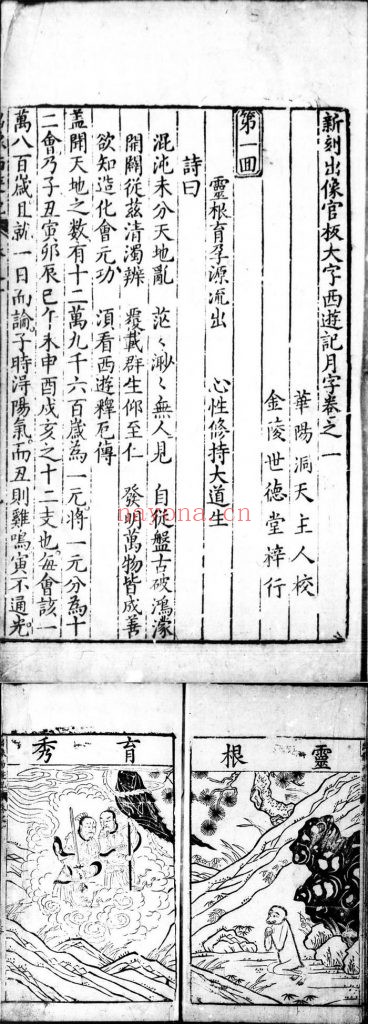 新刻出像官板大字西遊記月字卷之一
華陽洞天主人校
金陵世德堂梓行
第一回
靈根育孕源流出　心性修持大道生
詩曰
混沌未分天地亂　茫々渺々無人見　自從盤古破鴻蒙
開闢從茲清濁辨　覆載群生仰至仁　發明萬物皆成善
欲知造化會元功　須看西遊釋厄傳
盖聞天地之数有十二萬九千六百歲為一元將一元分為十
二會乃子丑寅卯辰巳午未申酉戌亥之十二支也每會該一
萬八百歲且就一日而論子時得陽氣而丑則雞鳴寅不通光
nayona.cn
靈根
育秀